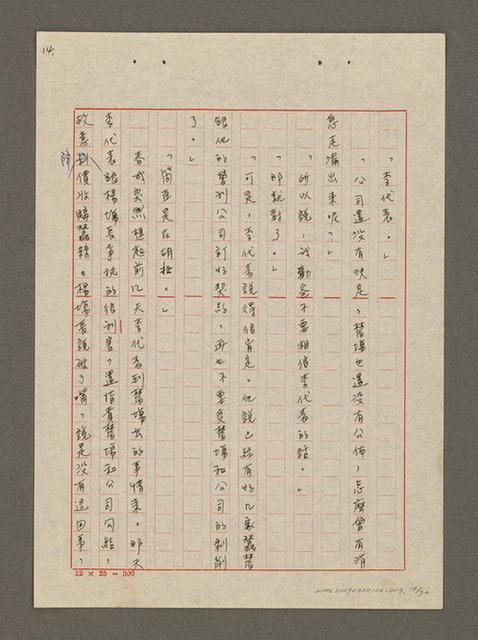 14.
「李代表。」
「公司還沒有決定,蔗場也還沒有公佈,怎麼會有消
息走漏出來呢?」
「所以說,我勸爸不要相信李代表的話。」
「那就對了。」
「可是,李代表說得倍肯定。他說已經有好幾家蠶蔗
跟他的營利公司訂好契約,再也不要受蔗場和公司的剝削
了。」
「簡直是在胡扯。」
春城突然想起前几天李代表到蔗場去的事情來。那天
李代表跟楊場長爭執的倍利害,還指責蔗場和公司勾結,
故意降價收購蠶絲。楊場長說破了嘴,說是沒有這回事,
12 × 25 = 300